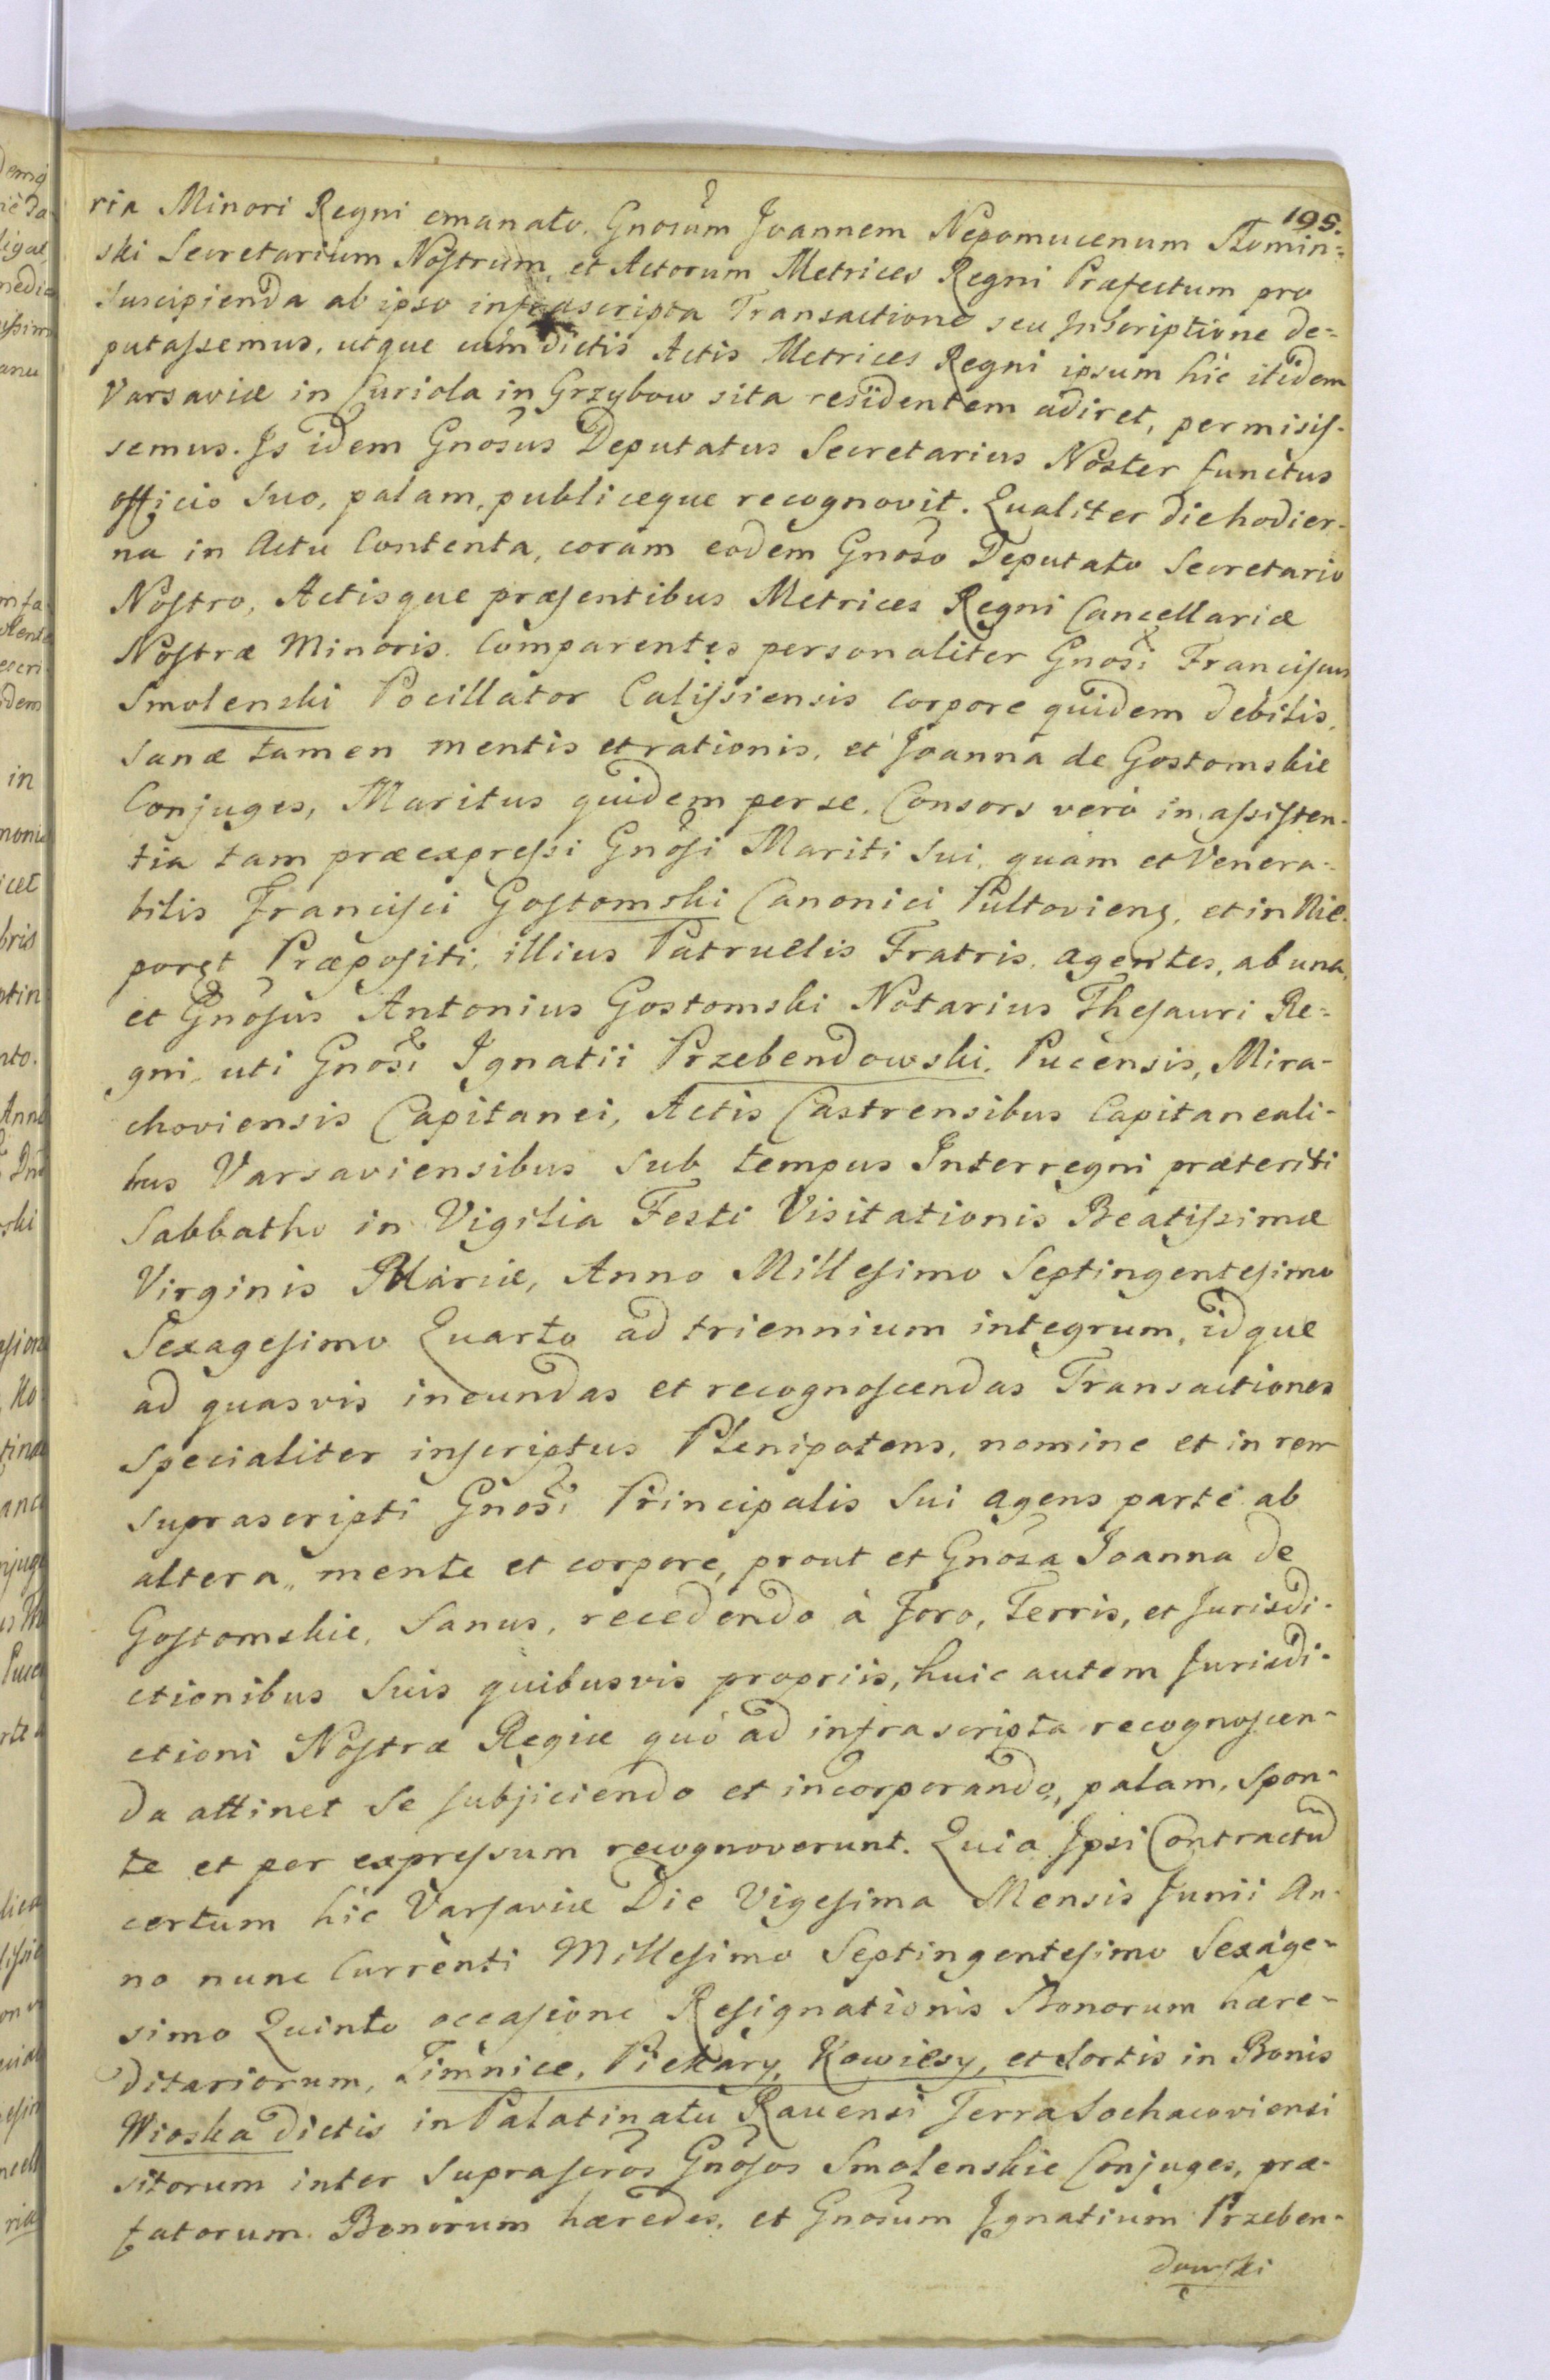 195.
ria Minori Regni emanato. Gnosum Joannem Nepomucenum Słomin=
ski Secretarium Nostrum, et Actorum Metrices Regni Præfectum pro
suscipienda ab ipso infrascripta Transactione seu Inscriptione de=
putassemus, utque cum dictis Actis Metrices Regni ipsum hic itidem
Varsaviæ in Curiola in Grzybow sita residentem adiret, permisis-
semus. Is idem Gnosus Deputatus Secretarius Noster functus
officio suo, palam, publiceque recognovit. Qualiter die hodier-
na in Actu Contenta, coram eodem Gnoso Deputato Secretario
Nostro, Actisque præsentibus Metrices Regni Cancellariæ
Nostræ Minoris. Comparentes personaliter Gnosi Franciscus
Smolenski Pocillator Calissiensis corpore quidem debilis,
sanæ tamen mentis et rationis, et Joanna de Gostomskie
Conjuges, Maritus quidem per se, Consors verò in assisten-
tia tam præexpressi Gnosi Mariti sui, quàm et Venera-
bilis Francisci Gostomski Canonici Pultoviens, et in Nie-
poręt Præpositi, illius Patruelis Fratris, agentes, ab una,
et Gnosus Antonius Gostomski Notarius Thesauri Re=
gni, uti Gnosi Ignatii Przebendowski, Pucensis, Mira-
choviensis Capitanei, Actis Castrensibus Capitaneali-
bus Varsaviensibus sub tempus Interregni præteriti
Sabbatho in Vigilia Festi Visitationis Beatissimæ
Virginis Mariæ, Anno Millesimo Septingentesimo
Sexagesimo Quarto ad triennium integrum, idque
ad quasvis ineundas et recognoscendas Transactiones
specialiter inscriptus Plenipotens, nomine et in rem
suprascripti Gnosi Principalis sui agens parte ab
altera, mente et corpore, prout et Gnosa Joanna de
Gostomskie, sanus, recedendo à Foro, Terris, et Jurisdi-
ctionibus suis quibusvis propriis, huic autem Jurisdi-
ctioni Nostræ Regiæ quò ad infrascripta recognoscen-
da attinet se subjiciendo et incorporando, palam, spon-
te et per expressum recognoverunt. Quia Ipsi Contractũ
certum hic Varsaviæ Die Vigesima Mensis Junii An-
no nunc Currenti Millesimo Septingentesimo Sexage-
simo Quinto occasione Resignationis Bonorum hære-
ditariorum, Zimnice, Piekary, Kowiesy, et Sortis in Bonis
Wioska dictis in Palatinatu Ravensi Terra Sochacoviensi
sitorum inter suprascros Gnosos Smolenskie Conjuges, præ-
fatorum Bonorum hæredes, et Gnosum Ignatium Przeben-
dowski